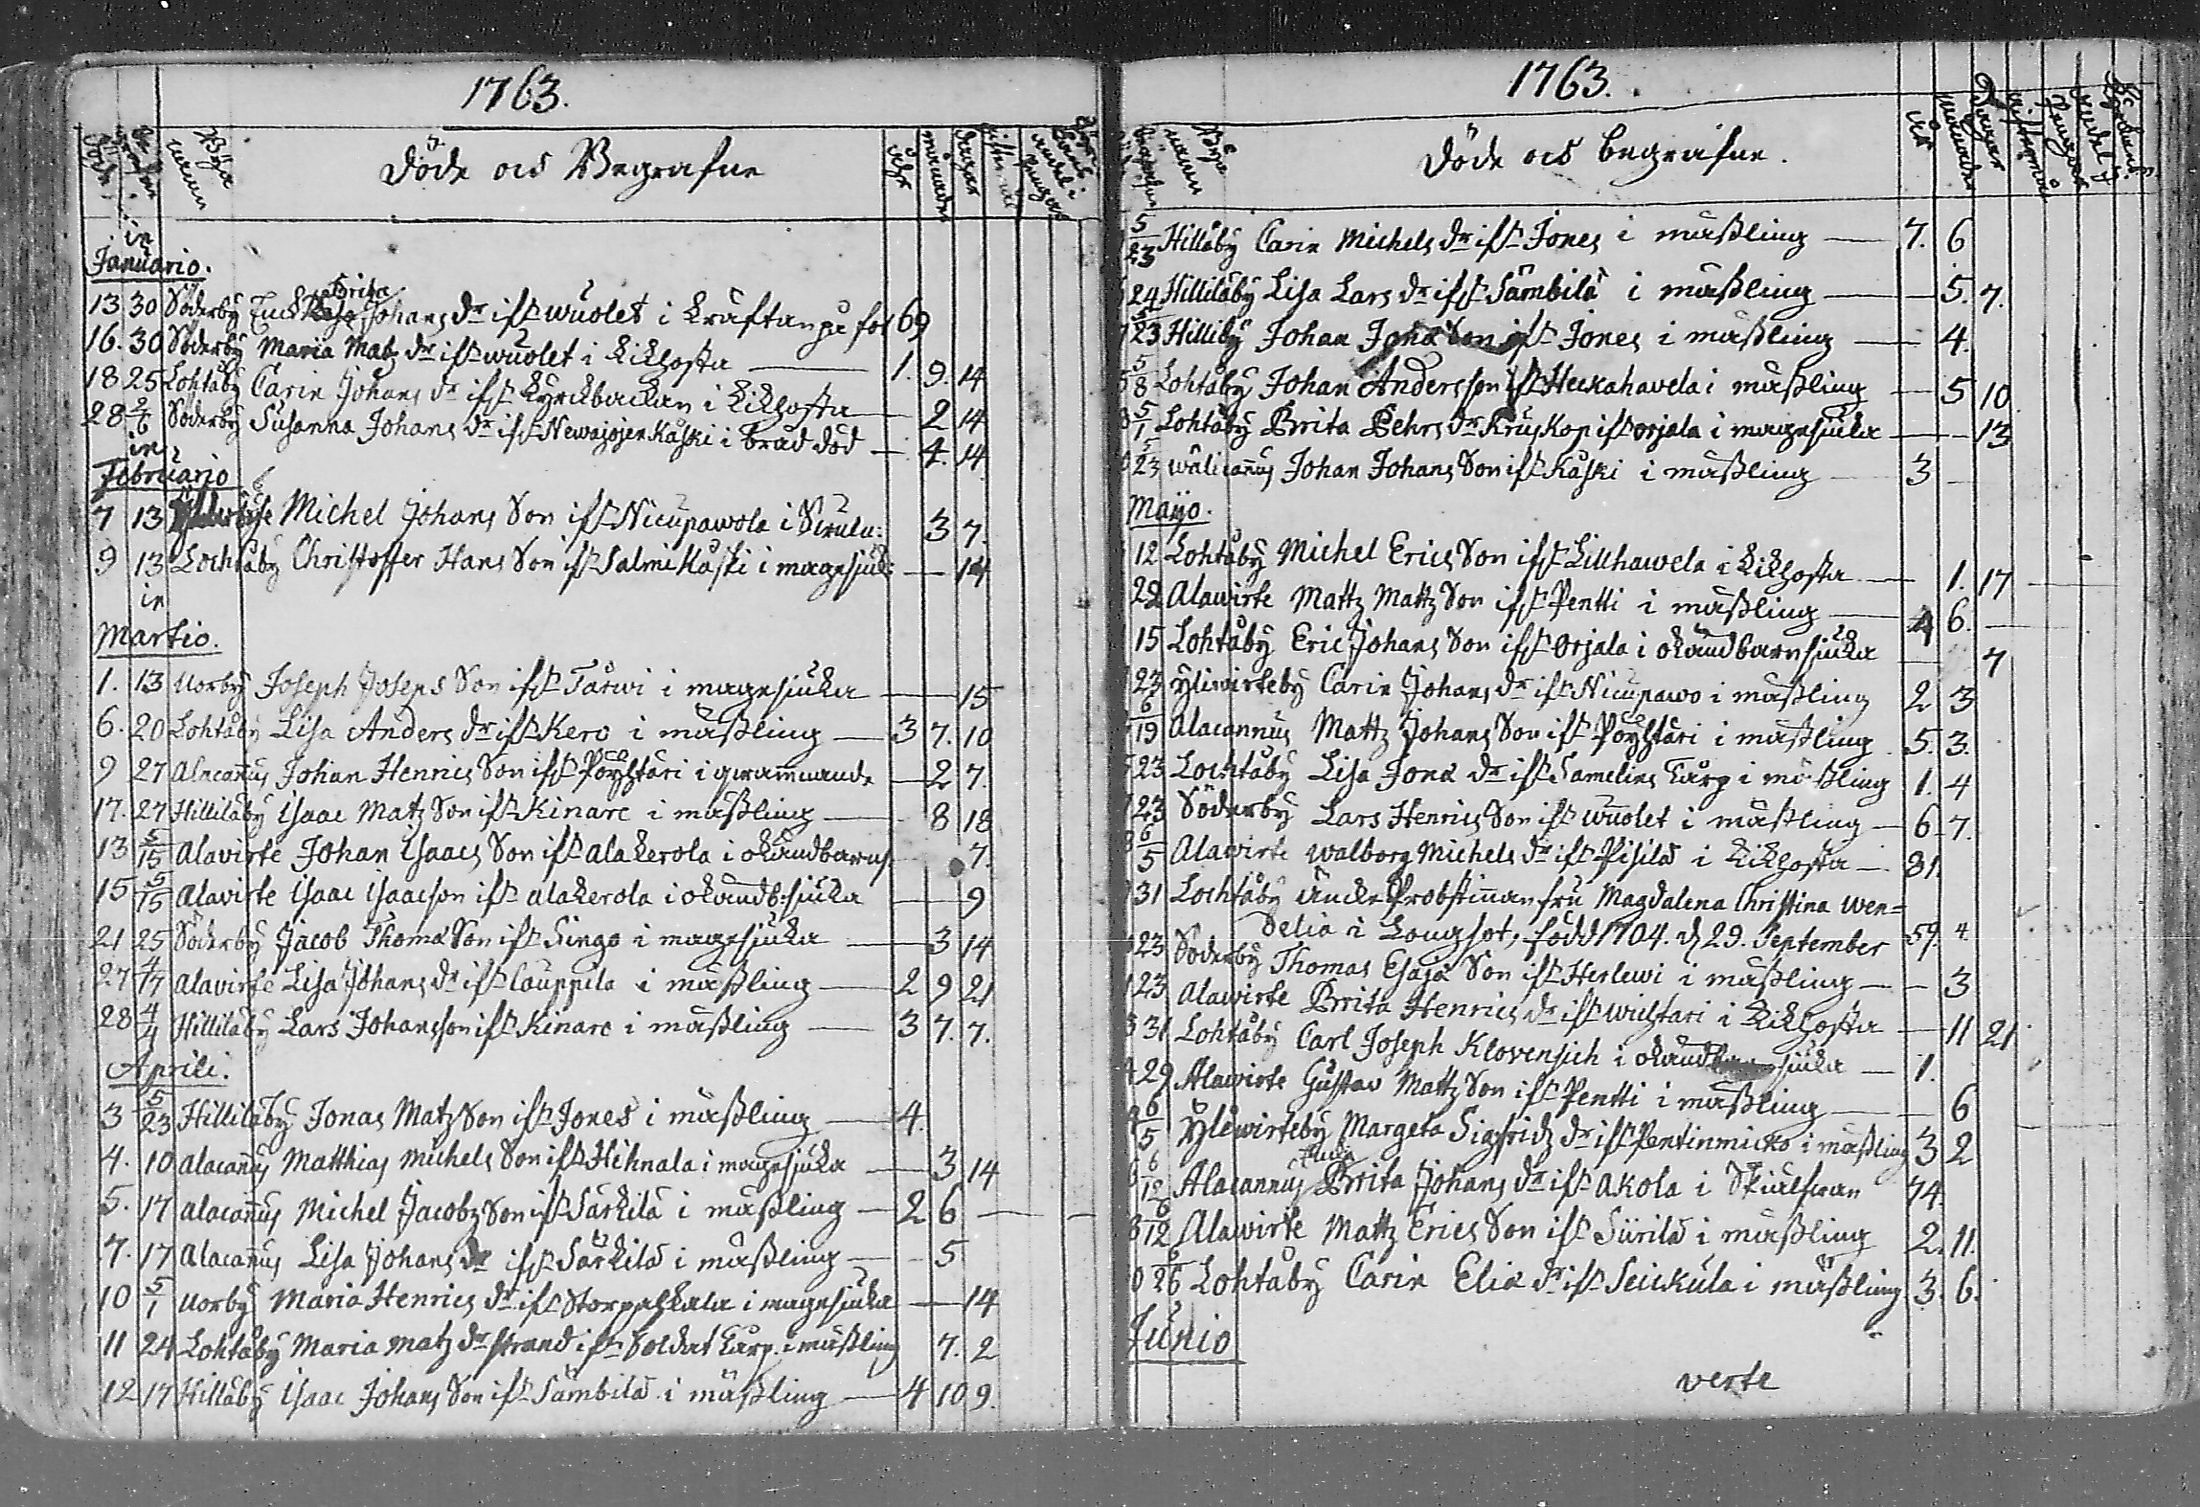 1763.
Döde
Byanamn
Döde och Begrafne
månader
dagar
in Januario.
13 30 Söderby Enck. Brita Johans dr ifr. wuolet i kräftan på fot 69
16. 30 Söderby Maria Matz dr ifr. wuolet i kikhosta — 1. 9. 14
18 25 Lohtåby Carin Johans dr ifr. kyrckbackan i kikhosta — 2 14
28 2/6 Söderby Susanna Johans dr ifr. Newajojenkåski i bråd död — 4. 14
in Februario
7 13 Michel Johans Son ifr. Nicupawola i 3 7.
9 13 Lochtåby Christoffer Hans Son ifr. Salmikåski i magesjuk: — 14
in Martio.
1. 13 Uorby Joseph Joseps Son ifr. Tarwi i magesjuka — 15
6. 20 Lohtåby Lisa Anders dr ifr. Kero i mäßling — 3 7. 10
9 27 Alacan̄us Johan Henrics Son ifr. Pöyhtäri i qwarnnande — 2 7.
17. 27 Hillilåby Isaac Matz Son ifr. Kinare i mäßling — 8 18
13 5/15 Alavirte Johan Isaacs Son ifr. alakerola i okändbarns 7.
15 5/15 Alavirte Isaac Isaacson ifr. alakerola i okändb:sjuka — 9
21 25 Söderby Jacob Thomæ Son ifr. Singo i magesjuka — 3 14
27 4/17 Alavirte Lisa Johans dr ifr. Cauppila i mäßling — 2 9 21
28 4/4 Hillilåby Lars Johansson ifr. Kinare i mäßling — 3 7. 7.
Aprili.
3 5/23 Hillilåby Jonas Matz Son ifr. Jones i mäßling — 4.
4. 10 alacan̄us Matthias Michels Son ifr. Hihnala i magesjuka — 3 14
5. 17 alacan̄us Michel Jacobz Son ifr. Särkilä i mäßling — 2 6 —
7. 17 Alacan̄us Lisa Johans dr ifr. Särkilä i mäßling — 5
10 5/1 Uorby Maria Henrics dr ifr. Storpahkala i magesjuka — 14
11 24 Lohtåby Maria Matz dr strand ifr. Soldat Torp. i mäßling 7. 2
12 17 Hillåby Isaac Johans Son ifr. Sämbilä i mäßling — 4 10 9.
1763.
Begrafne
Döde och begrafne.
år
månader
Dagar
5/23 Hillåby Carin Michels dr ifr. Jones i mäßling — 7. 6
24 Hillilåby Lisa Lars dr ifr. Sämbilä i mäßling — 5. 7.
23 Hilliby Johan Jonæ Son ifr. Jones i mäßling — 4.
5/8 Lohtåby Johan Andersson ifr. Heikahavela i mäßling — 5 10
5/1 Lohtåby Brita Pehrs dr Kruskop ifr. orjala i magesjuka — 13
5/23 wälican̄us Johan Johans Son ifr. Kåski i mäßling 3
Mayo.
12 Lohtåby Michel Erics Son ifr. Lillhawela i kikhosta — 1. 17
22 Alawirte Mattz Mattz Son ifr. Pentti i mäßling — 4 6. —
15 Lohtåby Eric Johans Son ifr. Orjala i okändbarnsjuka 7
23 yliwirteby Carin Johans dr ifr. Nicupawo i mäßling 2 3
6/19 Alacannus Mattz Johans Son ifr. Pöyhtäri i mäßling 5. 3.
23 Lochtåby Lisa Jonæ dr ifr. Samelins Torp i mäßling 1. 4
23 Söderby Lars Henrics Son ifr. wuolet i mäßling — 6. 7.
6/5 Alawirte walborg Michels dr ifr. Pisilä i kikhosta — 31.
31 Lochtåby Änckeprobstinnan fru Magdalena Christina Wen=
delia i Lougsot, född 1704. d 29. September 59. 4.
23 Söderby Thomas Esaiæ Son ifr. Herlewi i mäßling — 3
23 Alawirte Brita Henrics dr ifr. wirhtari i kikhosta — 11 21
31 Lohtåby Carl Joseph Klovensich i okändbarnsjuka — 1.
29 Alawirte Gustav Mattz Son ifr. Pentti i mäßling — 6
6/5 Yliwirteby Margeta Sigfridz dr ifr. Pentinmicko i mäßling 3 2
6/12 Alacannus Brita Johans dr ifr. Akola i Skiälfwan 74.
6/12 Alawirte Mattz Erics Son ifr. Siirilä i mäßling 2. 11.
6/26 Lohtåby Carin Eliæ dr ifr. Seikkula i mäßling 3. 6.
Junio
verte